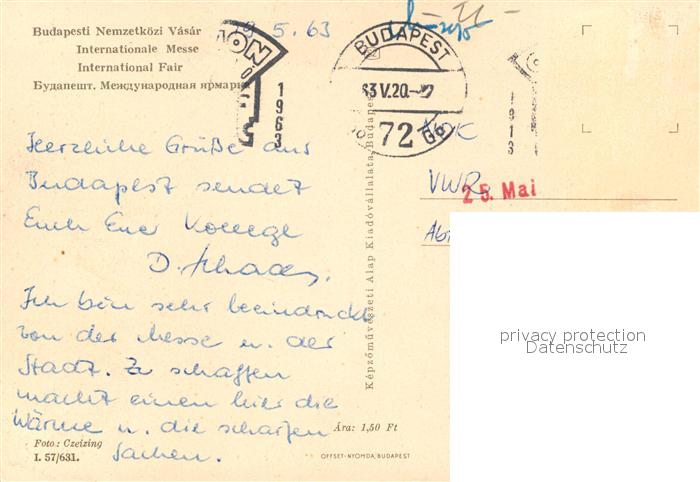 Budapesti Nemzetközi Vásár
Internationale Messe
International Fair
Будапешт. Международная ярмарка
9.5.63
1963
BUDAPEST
63 V.20.
72
1963
Herzliche Grüße aus
Budapest sendet
Euch Euer Kollege
D.
Ich bin sehr beeindruckt
von der Messe u. der
Stadt. Zu schaffen
macht einen hier die
Wärme u. die scharfen
Sachen.
VWR
25. Mai
Képzőművészeti Alap Kiadóvállalata, Budapest
privacy protection
Datenschutz
Ára: 1,50 Ft
Foto: Czeizing
I. 57/631.
OFFSET-NYOMDA, BUDAPEST